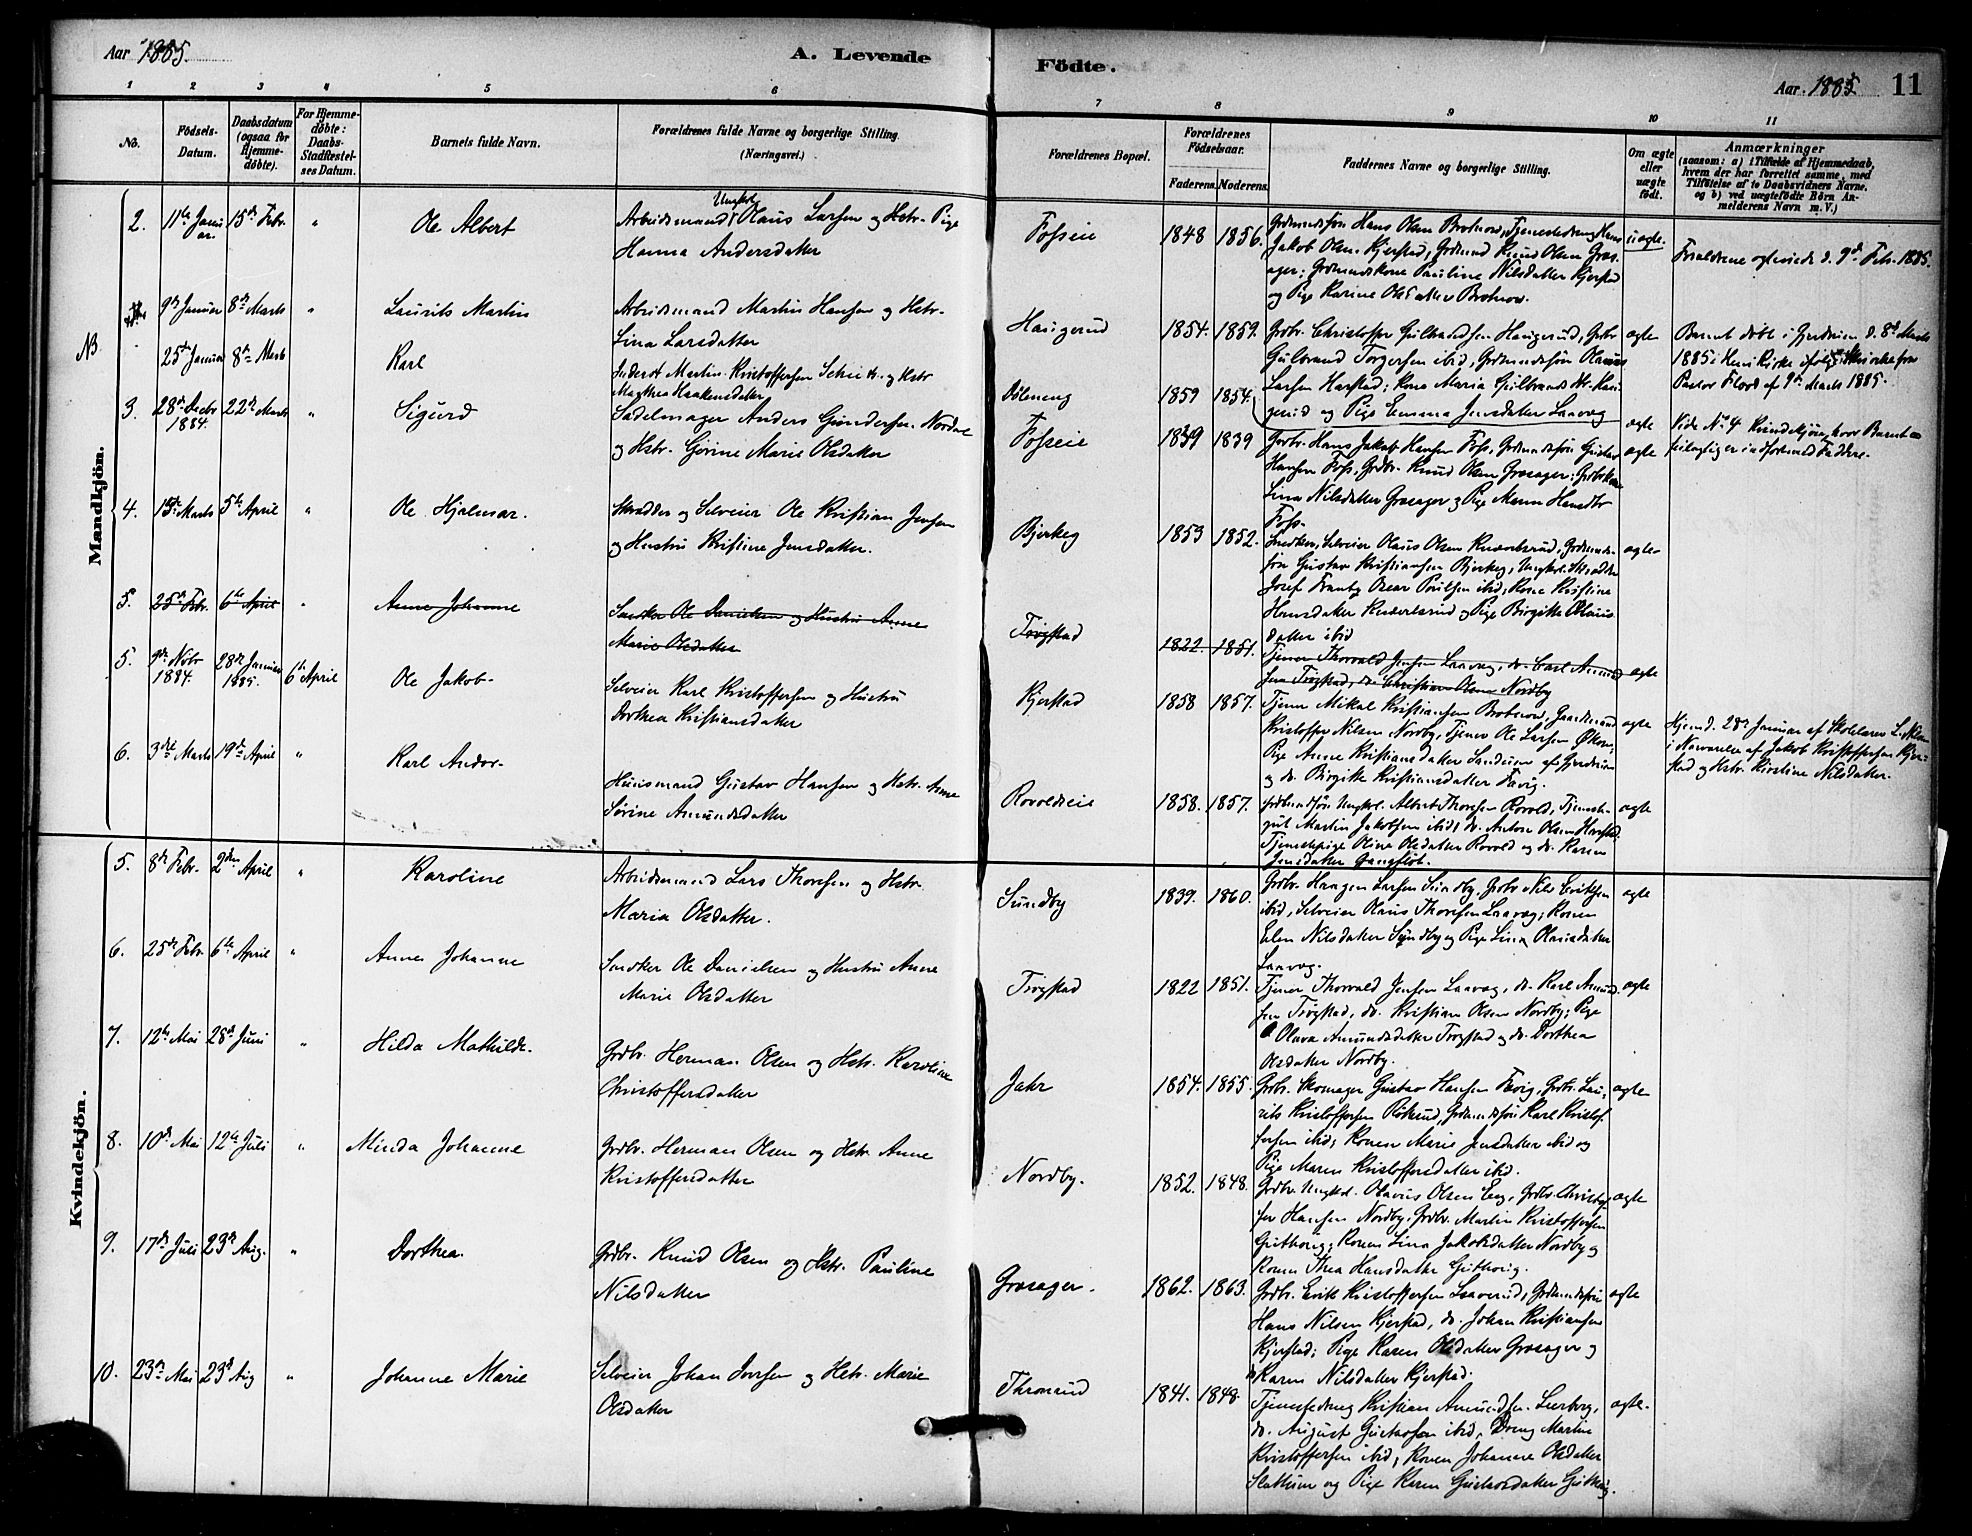 Aar 1885.
A. Levende
Födte.
Aar 1885.
11
1 2 3 4 5 6
7 8 9 10 11
No.
Födsels-
Datum.
Daabsdatum
(ogsaa for
Hjemme-
döbte).
For Hjemme-
döbte:
Daabs-
Stadfæstel-
ses Datum.
Barnets fulde Navn.
Forældrenes fulde Navne og borgerlige Stilling.
(Næringsvei.)
Forældrenes Bopæl.
Forældrenes
Födselsaar.
Faderens. Moderens.
Faddernes Navne og borgerlige Stilling.
Om ægte
eller
uægte
födt.
Anmærkninger
(saasom: a) i Tilfælde af Hjemmedaab,
hvem der har forrettet samme, med
Tilföielse af to Daabsvidners Navne,
og b) ved uægtefödte Börn An-
melderens Navn m. V.)
Mandkjön.
2. 11te Janu
ar. 15de Febr. " Ole Albert
Ungkl.
Arbeidsmand Olaus Larsen og Hstr. Pige
Hanna Andersdatter
Fosseie 1848 1856.
Grdmandssön Hans Olsen Brotnow, Tjenestedreng Hans
Jakob Olsen Kjerstad, Grdmand Knud Olsen Gras-
ager; Grdmandskone Pauline Nilsdatter Kjerstad
og Pige Karine Olsdatter Brotnow.
uægte.
Forældrene ægteviede d. 9de Febr. 1885.
NB.
9de Januar 8de Marts " Laurits Martin
Arbeidsmand Martin Hansen og Hstr.
Lina Larsdatter
Haugerud 1854. 1859.
Grdbr. Christoffer Gulbrandsen Haugerud, Grdbr.
Gulbrand Torgersen ibid, Grdmandssön Olaus
Larsen Harstad; Kone Maria Gulbrandsdtr. Hau-
gerud og Pige Emma Jensdatter Laaveg
ægte
Barnet döbt i Gjerdrum d. 8de Marts
1885 i Heni Kirke ifölge Skrivelse fra
Pastor Flood af 9de Marts 1885.
25de Januar 8de Marts Karl
Inderst Martin Kristoffersen Schie og Hstr
Mathea Haakensdatter
1859 1854.
ægte
Vide No 4 Kvindekjön, hvor Barnet
feilagtig er indfört med Faddere.
3. 28de Decbr
1884. 22de Marts " Sigurd
Sadelmager Anders Gundersen Nordal
og Hstr. Görine Marie Olsdatter
Fosseie 1839 1839
Grdbr. Hans Jakob Hansen Foss, Grdmandssön Gustav
Hansen Foss, Grdbr. Knud Olsen Grasager; Grdbrkone
Lina Nilsdatter Grasager og Pige Maren Hansdtr
Foss.
ægte
4. 15de Marts 5te April " Ole Hjalmar.
Skrædder og Selveier Ole Kristian Jensen
og Hustru Kristine Jensdatter.
Bjerkeg 1853 1852.
Snedker, Selveier Olaus Olsen Knæverlsrud, Grdmands-
sön Gustav Kristiansen Bjerkeg, Ungkl. Skrædder
Josef Frants Oscar Poulsen ibid, Kone Kristine
Hansdatter Knæverlsrud og Pige Birgitte Olaus-
datter ibid
ægte
5. 25de Febr. 6te April " Anne Johanne
Snedker Ole Danielsen og Hustru Anne
Marie Olsdatter
Trögstad 1822. 1851.
Tjener Thorvald Jensen Laaveg, do. Carl Amund-
sen Trögstad, do. Christian Olsen Nordby
ægte
5. 9de Novbr
1884. 28de Januar
1885. 6te April Ole Jakob
Selveier Karl Kristoffersen og Hustru
Dorthea Kristiansdatter
Kjerstad 1858 1857.
Tjener Mikal Kristiansen Brotnow, Gaardmand
Kristoffer Nilsen Nordby, Tjener Ole Larsen Økern,
Pige Anne Kristiansdatter Sandum af Gjerdrum
og do. Birgitte Kristiansdatter Fævig.
ægte
Hjemd. 28de Januar af Skolelærer L. Nilsen
i Nærværelse af Jakob Kristoffersen Kjer-
stad og Hstr. Kirstine Nilsdatter.
6. 3die Marts 19de April " Karl Andor
Huusmand Gustav Hansen og Hstr. Anne
Sörine Amundsdatter
Rovoldseie 1858. 1857.
Grdmandssön Ungkl. Albert Thoresen Rovold, Tjeneste-
gut Martin Jakobsen ibid, do. Anton Olsen Harstad;
Tjenestepige Oline Olsdatter Rovold og do. Karen
Jensdatter Gangflöt.
ægte
Kvindekjön.
5. 8de Febr. 2den April " Karoline
Arbeidsmand Lars Thoresen og Hstr.
Maria Olsdatter.
Sundby 1839. 1860.
Grdbr. Haagen Larsen Sundby, Grdbr. Nils Eriksen
ibid, Selveier Olaus Thoresen Laaveg; Konen
Elen Nilsdatter Sundby og Pige Lina Olausdatter
Laaveg.
ægte
6. 25de Febr. 6te April " Anne Johanne
Snedker Ole Danielsen og Hustru Anne
Marie Olsdatter
Trögstad 1822 1851.
Tjener Thorvald Jensen Laaveg, do. Karl Amund-
sen Trögstad, do. Kristian Olsen Nordby; Pige
Olava Amundsdatter Trögstad og do. Dorthea
Olsdatter Nordby.
ægte
7. 12te Mai 28de Juni " Hilda Mathilde.
Grdbr. Herman Olsen og Hstr. Karoline
Christoffersdatter
Jahr 1854. 1855.
Grdbr. Skomager Gustav Hansen Fævig, Grdbr. Lau-
rits Kristoffersen Röhnd, Grdmandssön Karl Kristof-
fersen ibid; Konen Marie Jensdatter ibid og
Pige Maren Kristoffersdatter ibid.
ægte
8. 10de Mai 12te Juli " Minda Johanne
Grdbr. Herman Olsen og Hstr. Anne
Kristoffersdatter
Nordby. 1852. 1848.
Grdbr. Ungkl. Olavus Olsen Eng, Grdbr. Christof-
fer Hansen Nordby, Grdbr. Martin Kristoffersen
Gutterig; Konen Lina Jakobsdatter Nordby og
Konen Thea Hansdatter Gutterig.
ægte
9. 17de Juli 23de Aug. " Dorthea.
Grdbr. Knud Olsen og Hstr. Pauline
Nilsdatter
Grasager. 1862. 1863.
Grdbr. Erik Kristoffersen Laaverud, Grdmandssön
Hans Nilsen Kjerstad, do. Johan Kristiansen
Kjerstad; Pige Karen Olsdatter Grasager og
Karen Nilsdatter Kjerstad.
ægte
10. 23de Mai 23de Aug " Johanne Marie
Selveier Johan Iversen og Hstr. Marie
Olsdatter
Thronrud 1841. 1848.
Tjenestedreng Kristian Amundsen Leerberg,
do. August Gustavsen ibid, Dreng Martin
Kristoffersen ibid; Konen Johanne Olsdatter
Slattum og Pige Karen Gustavsdatter Gutterig.
ægte.